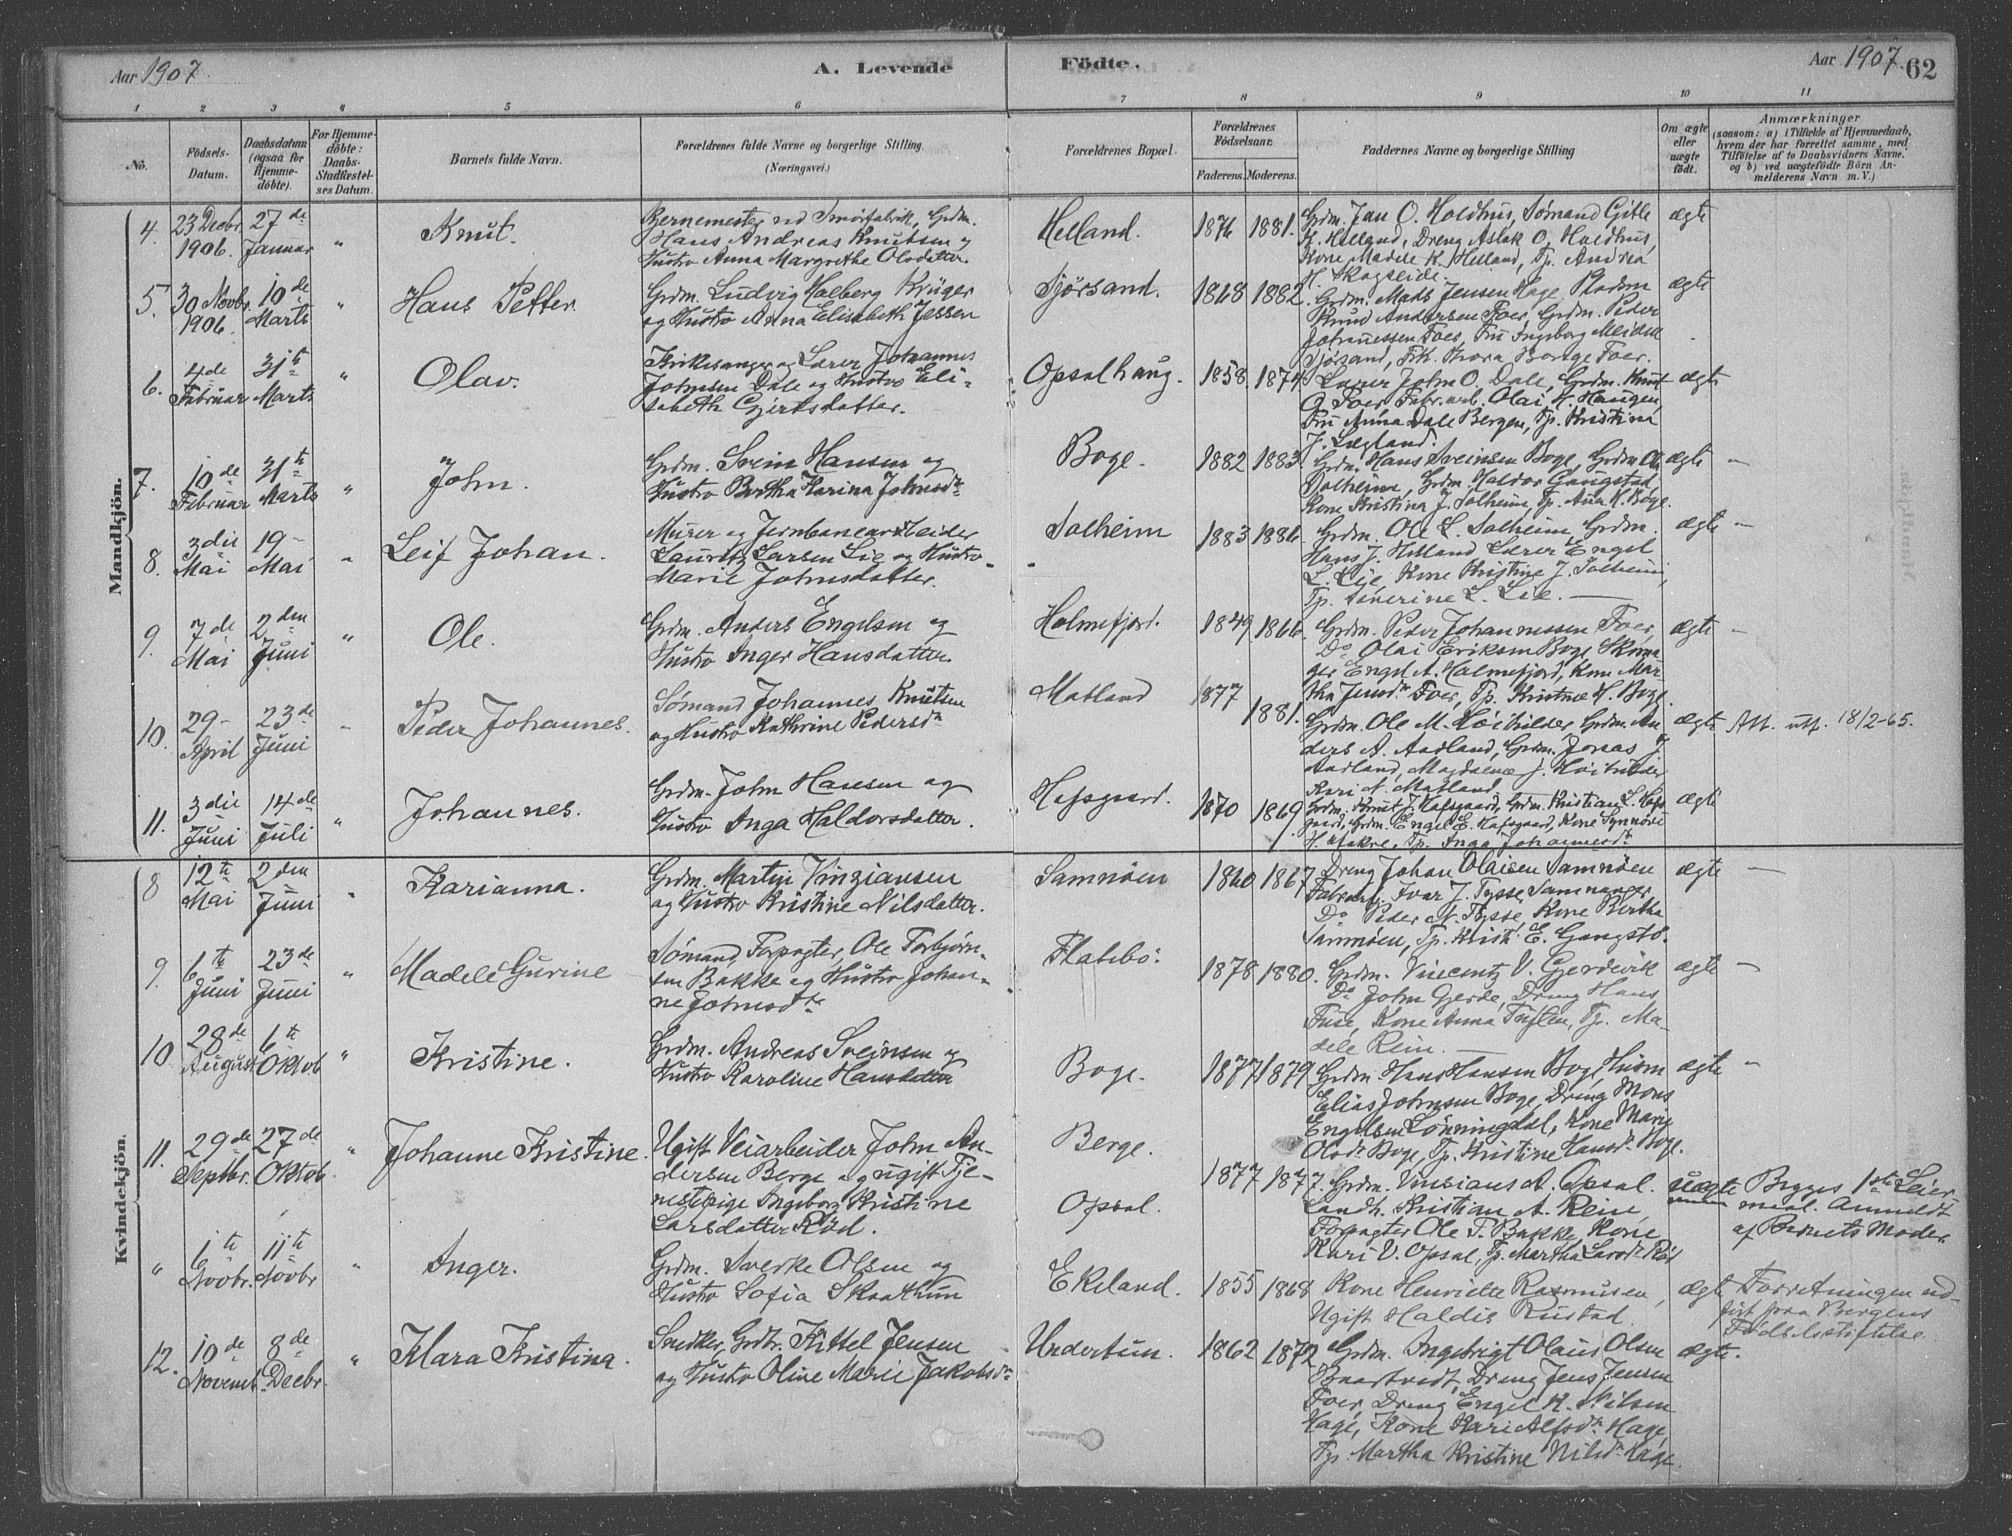 Aar 1907
A. Levende
Födte.
Aar 1907.
62
1 2 3 4 5 6 7 8 9 10 11
No.
Födsels-
Datum.
Daabsdatum
(ogsaa for
Hjemme-
döbte).
For Hjemme-
döbte:
Daabs-
Stadfæstel-
ses Datum.
Barnets fulde Navn.
Forældrenes fulde Navne og borgerlige Stilling.
(Næringsvei.)
Forældrenes Bopæl.
Forældrenes
Födselsaar.
Faderens. Moderens.
Faddernes Navne og borgerlige Stilling
Om ægte
eller
uægte
födt.
Anmærkninger
(saasom: a) i Tilfælde af Hjemmedaab,
hvem der har forrettet samme, med
Tilföielse af to Daabsvidners Navne,
og b) ved uægtefödte Börn An-
melderens Navn m. V.)
Mandkjön.
4. 23 Decbr. 27de
1906. Januar "
Knut.
Hans Andreas Knutsen og
Hustro Anna Margrethe Olsdatter.
Helland.
1876 1881.
Grdm. Jan O. Holdhus, Sømand Gitle
K. Helland, Dreng Aslak O. Holdhus,
Kone Madele K. Helland, Tp. Andrea
H. Skogseide.
ægte
5. 30 Novbr. 10de
1906. Marts "
Hans Petter.
Grdm. Ludvig Halberg Krüger
og Hustro Anna Elisabeth Jessen
Sjørsand.
1868 1882
Grdm. Mads Jensen Hage,
Knud Andersen Foer, Grdm. Peder
Johannessen Foer, Fru Ingeborg
Sjørsand, Frk. Thora Borge Foer.
ægte
6. 4de 31te
Februar Marts "
Olav.
Kirkesanger og Lærer Johannes
Johnsen Dale og Hustro Eli-
sabeth Gjertsdatter.
Opsalhaug.
1858 1874
Lærer John O. Dale, Grdm. Knut
O. Foer, Fabr.arb. Olai H. Haugen,
Fru Anna Dale Bergen, Tp. Kristina
J. Lægland.
ægte
7. 10de 31te
Februar Marts "
John.
Grdm. Svein Hansen og
Hustro Bertha Karina Johnsdtr
Boge.
1882 1883
Grdm. Hans Sveinsen Boge, Grdm. Ole
Solheim, Grdm. Haldor Gangstad,
Kone Kristina J. Solheim, Tp. Ana H. Boge.
ægte –
8. 3die 19–
Mai Mai "
Leif Johan.
Murer og Jernbanearbeider
Lauritz Larsen Lie og Hustro
Marie Johnsdatter.
Solheim
1883 1886
Grdm. Ole L. Solheim, Grdm.
Hans J. Helland, Lærer Engel
L. Lie, Kone Kristine J. Solheim,
Tp. Severine L. Lie.
ægte –
9. 7de 2den
Mai Juni "
Ole.
Grdm. Anders Engelsen og
Hustro Inger Hansdatter.
Holmefjord.
1849 1866
Grdm. Peder Johannessen Foer,
Do Olai Eriksen Boge, Skoma-
ger Engel A. Holmefjord, Kone Mar-
tha Jensdtr Foer, Tp. Kristine H. Boge.
ægte –
10. 29– 23de
April Juni –
Peder Johannes.
Sømand Johannes Knutsen
og Hustro Kathrine Pedersdtr
Matland
1877
1881.
Grdm. Ole M. Høibilder, Grdm. An-
ders A. Aadland, Grdm. Jonas J.
Aadland, Magdalene J. Høibilder
Kari N. Matland
ægte
Att. utf. 18/2-65.
11. 3die 14de
Juni Juli "
Johannes.
Grdm. John Hansen og
Hustro Inga Haldorsdatter.
Hafsgaard.
1870 1869
Grdm. Knut J. Hafsgaard, Grdm. Kristian L. Hafs-
gaard, Grdm. Engel E. Hafsgaard, Kone Synnøve
H. Aakre, Tp. Inga Johannesdtr
ægte
Kvindekjön.
8 12te 2den
Mai Juni "
Karianna.
Grdm. Martin Vinziansen
og Hustro Kristine Nilsdatter.
Samnøen
1860 1867
Dreng Johan Olaisen Samnøen
Fabr.arb. Ivar J. Tysse, Samnanger
Do Peder N. Tysse, Kone Bertha
Samnøen, Tp. Krist. E. Gangstø.
ægte –
9. 6te 23de
Juni Juni "
Madele Gurine
Sømand, Forpagter, Ole Torbjørn-
sen Bakke og Hustro Johan-
ne Johnsdtr
Flatebø.
1878 1880
Grdm. Vincentz V. Gjerdevik
Do John Gjerde, Dreng Hans
Fuse, Kone Anna Tuften, Tp. Ma-
dele Rein.
ægte –
10. 28de 6te
August Oktob "
Kristine.
Grdm. Andreas Sveinsen og
Hustro Karoline Hansdatter
Boge.
1877 1879
Grdm. Hans Hansen Boge, Husm
Elias Johnsen Boge, Dreng Mons
Engelsen Lønningdal, Kone Marie
Olsdtr Boge, Tp. Kristine Hansdtr Boge.
ægte –
11. 29de 27de
Septbr. Oktob. "
Johanne Kristine.
Ugift Veiarbeider John An-
dersen Berge og ugift Tje-
nestepige Ingeborg Kristine
Larsdatter Rød.
Berge.
Opsal.
1877 1877.
Grdm. Vinsians A. Opsal.
Landh. Kristian A. Rein
Forpagter Ole T. Bakke, Kone
Kari V. Opsal, Tp. Martha Larsdtr Rød
uægte
Begges 1ste Leier-
maal. Anmeldt
af Barnets Moder.
" 6te 11te
Novbr. Novbr "
Inger.
Grdm. Sverke Olsen og
Hustro Sofia Skaathun
Ekeland.
1855 1868
Kone Henriette Rasmusen,
Ugift Haldis Rustad.
ægte
Forretningen ud-
ført paa Bergens
Fødselsstiftelse.
12. 10de 8de
Novemb. Decbr. "
Klara Kristina.
Snedker, Grdbr. Kittel Jensen
og Hustro Oline Marie Jakobsdtr
Undertun.
1862 1872
Grdm. Ingebrigt Olaus Olsen
Baartvedt, Dreng Jens Jensen
Foer, Dreng Engel K. Nilsen
Hage, Kone Kari Alfsdtr Hage,
Tp. Martha Kristine Nilsdtr Hage.
ægte.